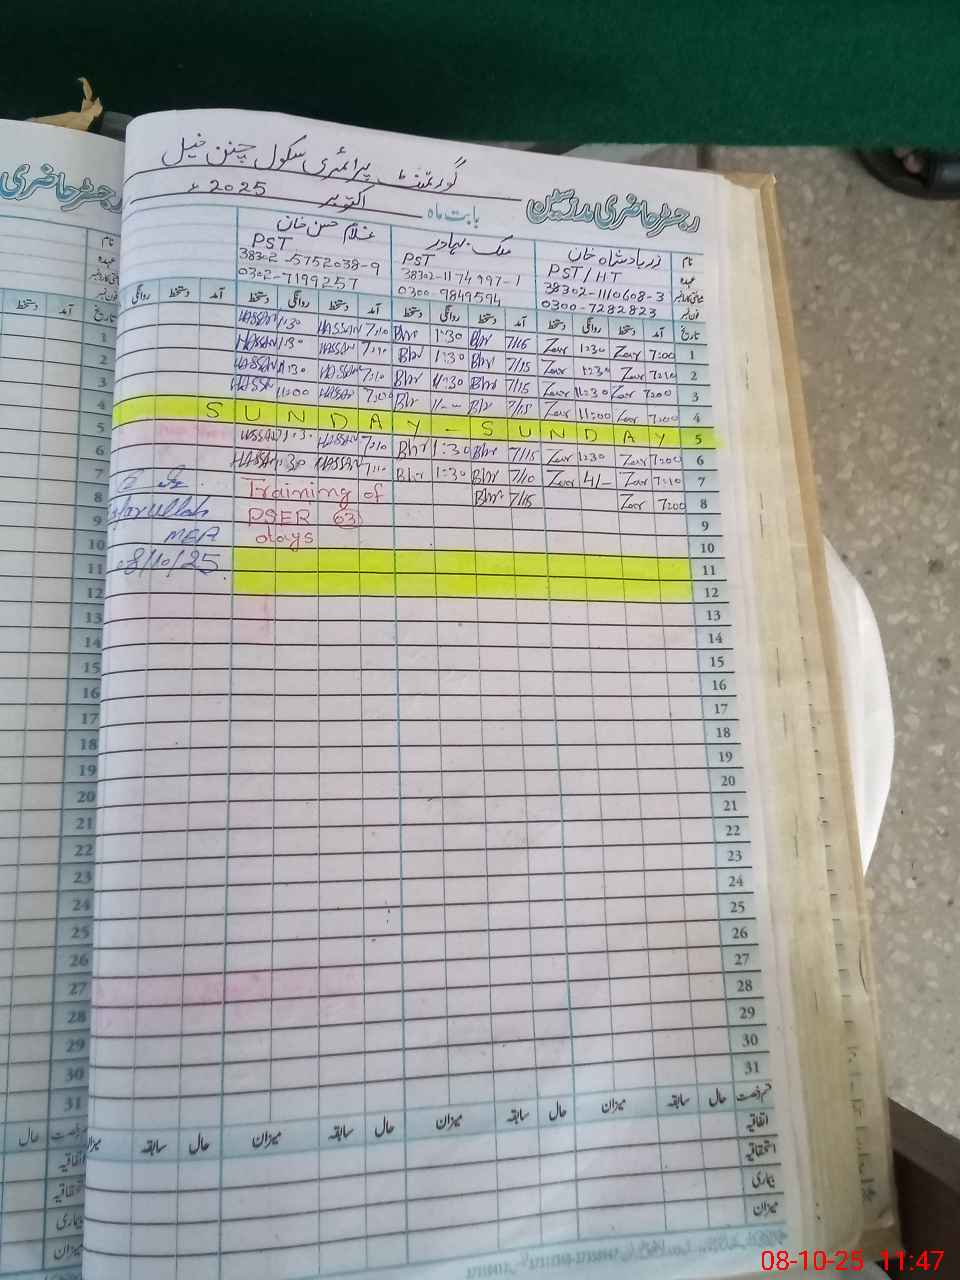 گورنمنٹ پرائمری سکول چنن خیل
رجسٹر حاضری مدرسین
بابت ماہ اکتوبر 2025ء
نام زربادشاہ خان ملک بہادر غلام حسن خان
عہدہ PST/HT PST PST
38302-1110608-3 38302-1174997-1 38302-5752038-9
0300-7282823 0300-9849594 0302-7199257
تاریخ آمد دستخط روانگی دستخط آمد دستخط روانگی دستخط آمد دستخط روانگی دستخط آمد دستخط روانگی
1 7:00 Zar 1:30 Zar 7/15 Bhr 1:30 Bhr 7:10 HASSAN 1:30 HASSAN
2 7:10 Zar 1:30 Zar 7/15 Bhr 1:30 Bhr HASSAN 1:30 HASSAN
3 7:00 Zar 11:30 Zar 7/15 Bhr 11:30 Bhr 7:10 HASSAN 11:30 HASSAN
4 7:00 Zar 11:00 Zar 7/15 Bhr Bhr HASSAN 11:00 HASSAN
5 SUNDAY - SUNDAY
6 7:00 Zar 1:30 Zar 7/15 Bhr 1:30 Bhr 7:10 HASSAN HASSAN
7 7:10 Zar 4/- Zar 7/10 Bhr 1:30 Bhr HASSAN 1:30 HASSAN
8 7:00 Zar 7/15 Bhr Training of
9 PSER 63
10 days
MEA
8/10/25
11
12
13
14
15
16
17
18
19
20
21
22
23
24
25
26
27
28
29
30
31
قسم رخصت حال سابقہ میزان حال سابقہ میزان حال سابقہ میزان حال سابقہ
اتفاقیہ
استحقاقیہ
بیماری
میزان
رجسٹر حاضری
نام
عہدہ
تاریخ آمد دستخط
1
2
3
4
5
6
7
8
9
10
11
12
13
14
15
16
17
18
19
20
21
22
23
24
25
26
27
28
29
30
31
حال
اتفاقیہ
استحقاقیہ
بیماری
میزان
08-10-25 11:47